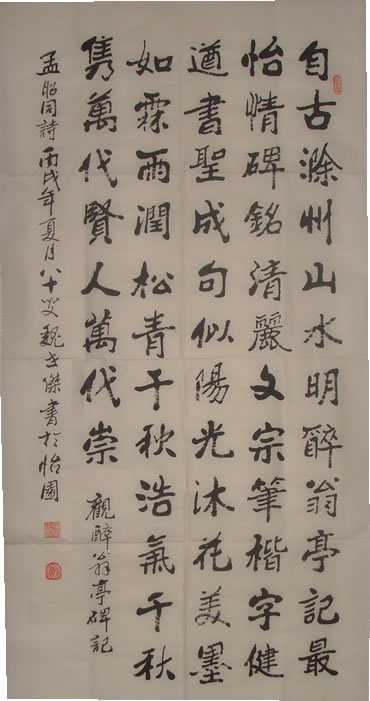 自古滁州山水明醉翁亭記最
怡情碑銘清麗文宗筆楷字健
遒書聖成句似陽光沐花美墨
如霖雨潤松青千秋浩氣千秋
雋萬代賢人萬代崇
觀醉翁亭碑記
孟昭同詩丙戌年夏月八十叟魏士傑書於怡園